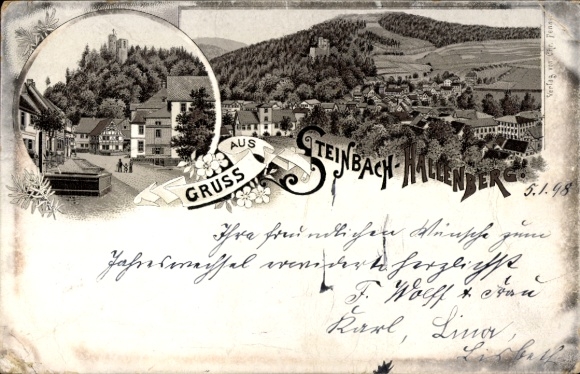 GRUSS AUS
STEINBACH-HALLENBERG.
5.1.98
Ihre freundlichen Wünsche zum
Jahreswechsel erwidert herzlichst
F. Wolff & Frau
Karl, Lina,
Verlag von